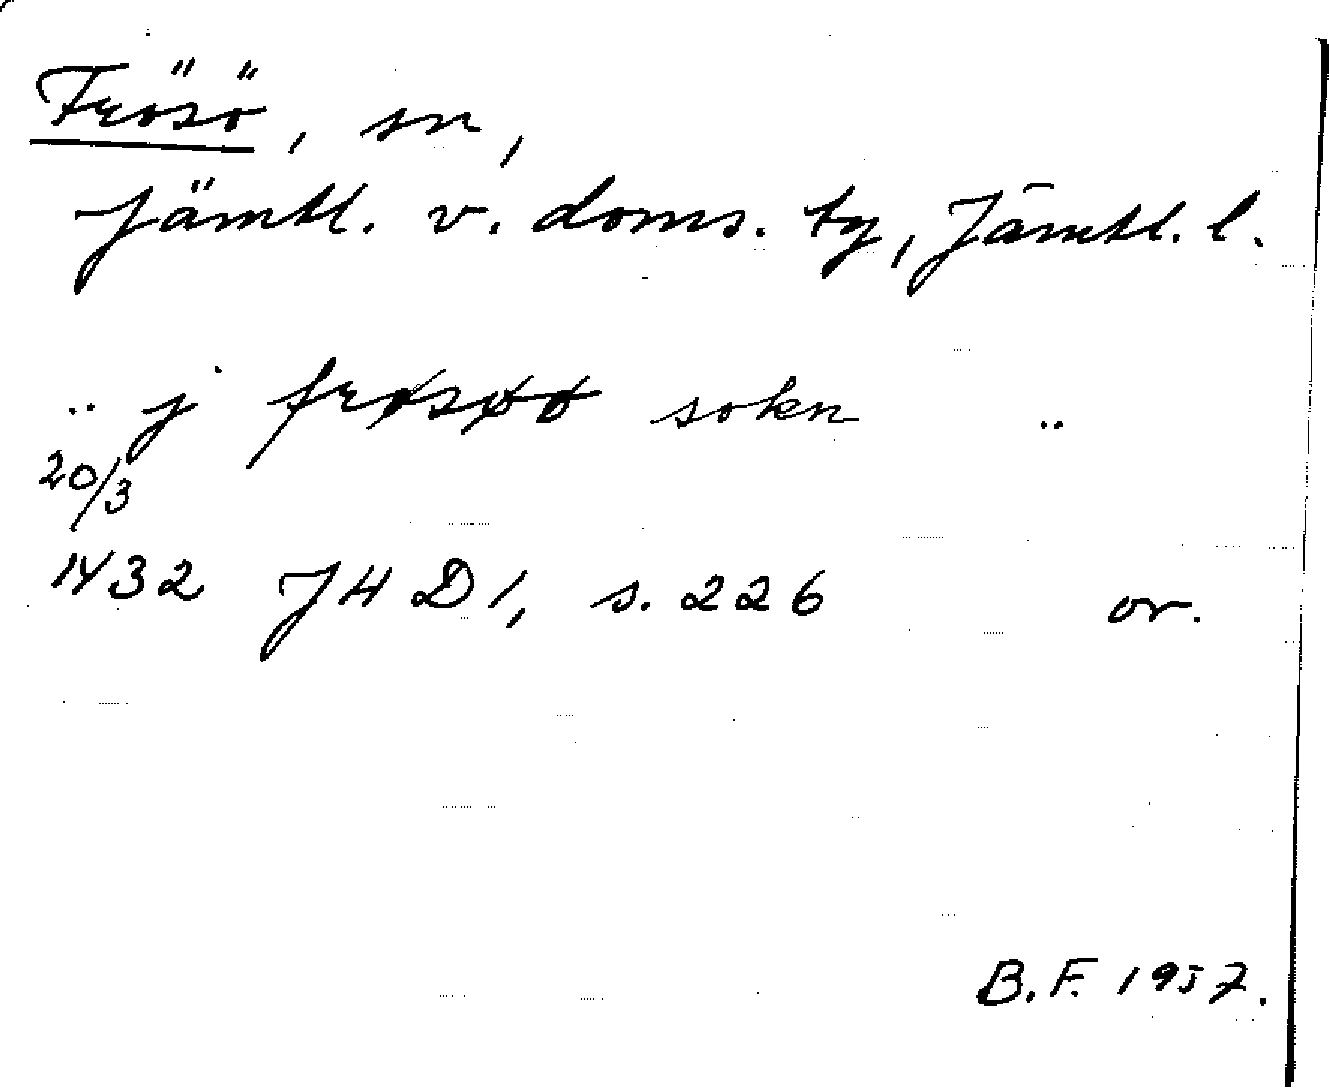 Frösö, sn,
Jämtl. v. doms. tg, Jämtl. l.
.. j frøsøø sokn ..
20/3
1432 JHD1, s. 226 or.
B.F. 1957.